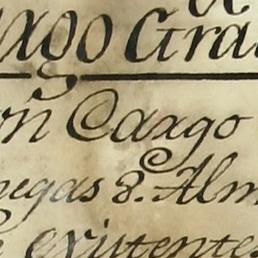 axgo Gra
on Caxgo
negas 8. Alm
existente